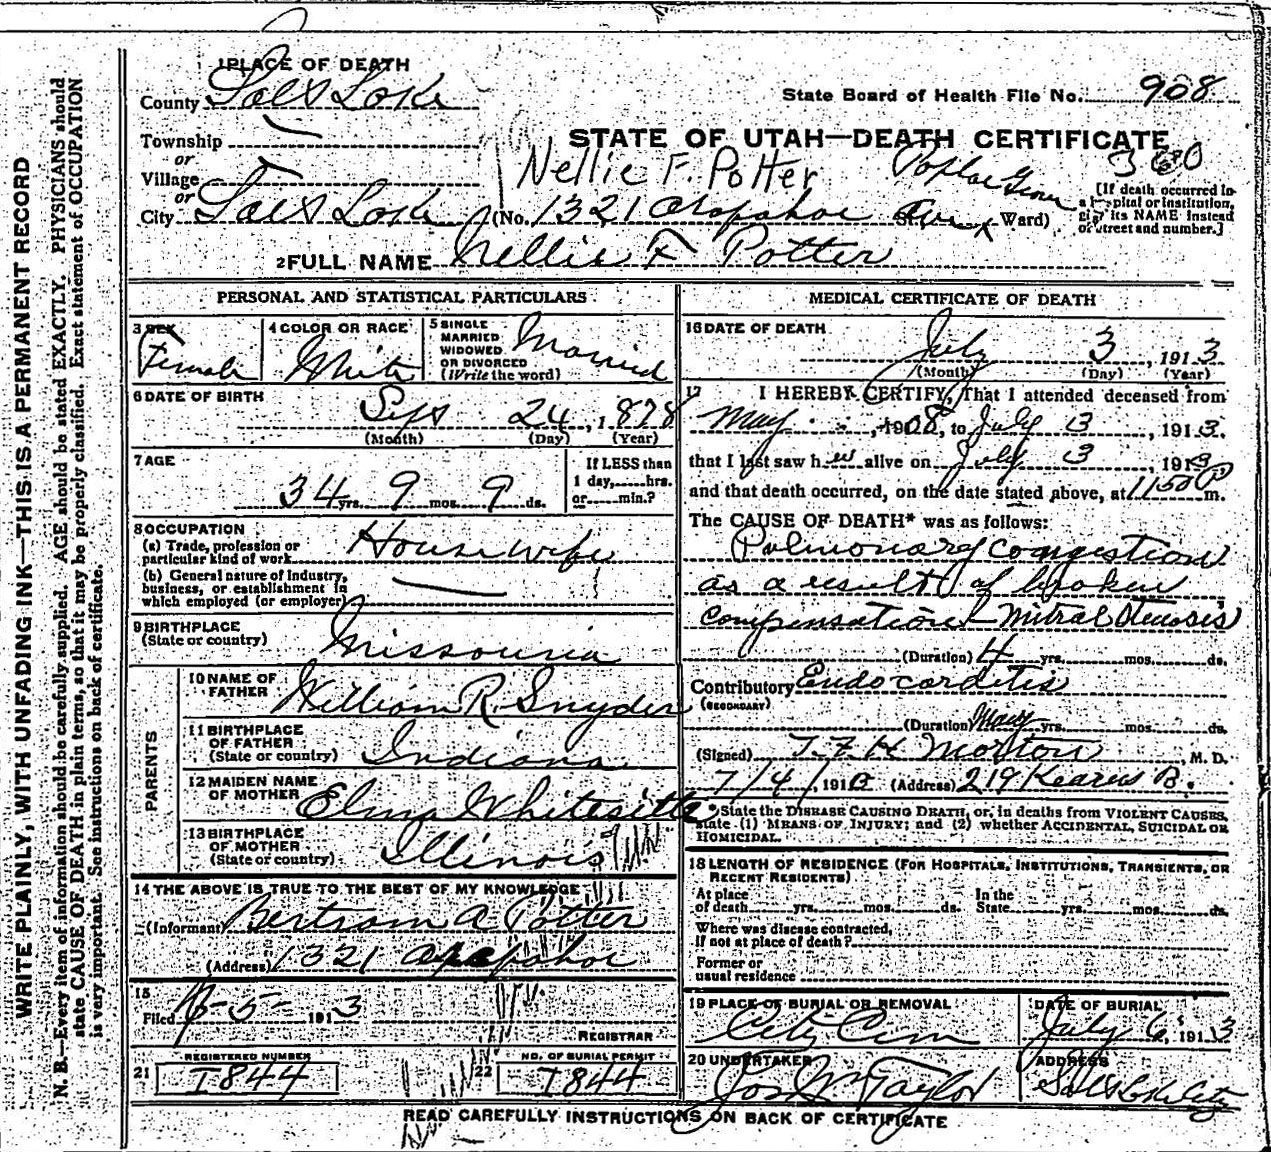 WRITE PLAINLY, WITH UNFADING INK—THIS IS A PERMANENT RECORD
N. B.—Every item of information should be carefully supplied. AGE should be stated EXACTLY. PHYSICIANS should
state CAUSE OF DEATH in plain terms, so that it may be properly classified. Exact statement of OCCUPATION
is very important. See instructions on back of certificate.
1 PLACE OF DEATH
County Salt Lake
State Board of Health File No. 908
Township
or
Village
or
STATE OF UTAH—DEATH CERTIFICATE
Nellie F. Potter Poplar Grove 360
City Salt Lake (No. 1321 Arapahoe Ave St. Ward)
[If death occurred in
a hospital or institution,
give its NAME instead
of street and number.]
2 FULL NAME Nellie F Potter
PERSONAL AND STATISTICAL PARTICULARS
3 SEX
Female
4 COLOR OR RACE
White
5 SINGLE
MARRIED
WIDOWED
OR DIVORCED
(Write the word)
Married
6 DATE OF BIRTH
Sept 24, 1878
(Month) (Day) (Year)
7 AGE
34 yrs. 9 mos. 9 ds.
If LESS than
1 day,......hrs.
or......min.?
8 OCCUPATION
(a) Trade, profession or
particular kind of work Housewife
(b) General nature of industry,
business, or establishment in
which employed (or employer)
9 BIRTHPLACE
(State or country) Missouria
PARENTS
10 NAME OF
FATHER William R. Snyder
11 BIRTHPLACE
OF FATHER
(State or country) Indiana
12 MAIDEN NAME
OF MOTHER Elma Whitesitte
13 BIRTHPLACE
OF MOTHER
(State or country) Illinois
14 THE ABOVE IS TRUE TO THE BEST OF MY KNOWLEDGE
(Informant) Bertram A Potter
(Address) 1321 Arapahoe
15
Filed -5- 1913
REGISTRAR
21 REGISTERED NUMBER
I844
22 NO. OF BURIAL PERMIT
I844
MEDICAL CERTIFICATE OF DEATH
16 DATE OF DEATH
July 3, 1913
(Month) (Day) (Year)
17 I HEREBY CERTIFY, That I attended deceased from
May, 1908, to July 3, 1913.
that I last saw her alive on July 3, 1913
and that death occurred, on the date stated above, at 1150 P m.
The CAUSE OF DEATH* was as follows:
Pulmonary congestion
as a result of broken
compensation Mitral Stenosis
(Duration) 4 yrs. mos. ds.
Contributory Endocarditis
(SECONDARY)
(Duration) Many yrs. mos. ds.
(Signed) T. F. H. Morton, M. D.
7/4/, 1913 (Address) 219 Kearns B.
*State the DISEASE CAUSING DEATH, or, in deaths from VIOLENT CAUSES,
state (1) MEANS OF INJURY; and (2) whether ACCIDENTAL, SUICIDAL OR
HOMICIDAL.
18 LENGTH OF RESIDENCE (FOR HOSPITALS, INSTITUTIONS, TRANSIENTS, OR
RECENT RESIDENTS)
At place
of death......yrs......mos......ds.
In the
State......yrs......mos......ds.
Where was disease contracted,
if not at place of death?
Former or
usual residence
19 PLACE OF BURIAL OR REMOVAL
City Cem
DATE OF BURIAL
July 6, 1913
20 UNDERTAKER
Jos. Wm Taylor
ADDRESS
Salt Lake City
READ CAREFULLY INSTRUCTIONS ON BACK OF CERTIFICATE